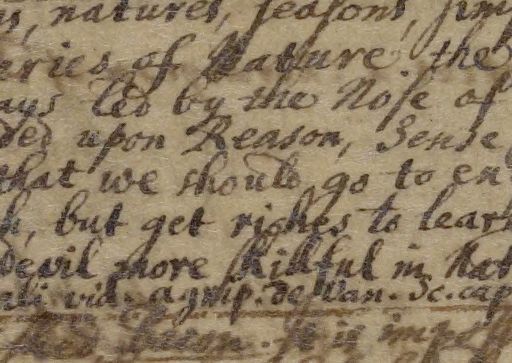 , natures, seasons, sim
eries of Nature the
ays led by the Nose of
ded upon Reason, Sense
that we should go to en
h, but get riches to lear
Devil more skillful in Nat
vid. Agrip. de Van. Sc. cap
. It is imp